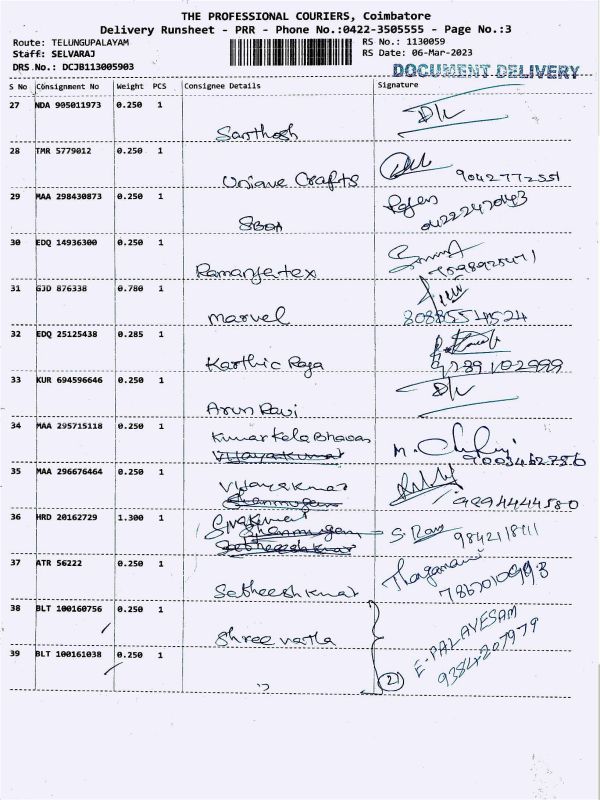 THE PROFESSIONAL COURIERS, Coimbatore
Delivery Runsheet - PRR - Phone No.:0422-3505555 - Page No.:3
Route: TELUNGUPALAYAM RS No.: 1130059
Staff: SELVARAJ RS Date: 06-Mar-2023
DRS No.: DCJB113005903 DOCUMENT DELIVERY
S No Consignment No Weight PCS Consignee Details Signature
27 NDA 905011973 0.250 1
Santhosh
28 TMR 5779012 0.250 1
Unique Crafts 9042772551
29 MAA 298430873 0.250 1
SBOA 04222470143
30 EDQ 14936300 0.250 1
Ramanjertex
31 GJD 876338 0.780 1
Marvel 8088554524
32 EDQ 25125438 0.285 1
Karthic Raja 9789102999
33 KUR 694596646 0.250 1
Arun Ravi
34 MAA 295715118 0.250 1
Kumar Kala Bhavan
Vijayakumar 9003462786
35 MAA 296676464 0.250 1
Vijayakumar
Shanmugam 9994444580
36 HRD 20162729 1.300 1
Shanmugam S. Ram
Satheeshkumar
37 ATR 56222 0.250 1
Satheeshkumar
38 BLT 100160756 0.250 1
Shree vatla E. PALAVESAM
9384207979
39 BLT 100161038 0.250 1
" 2